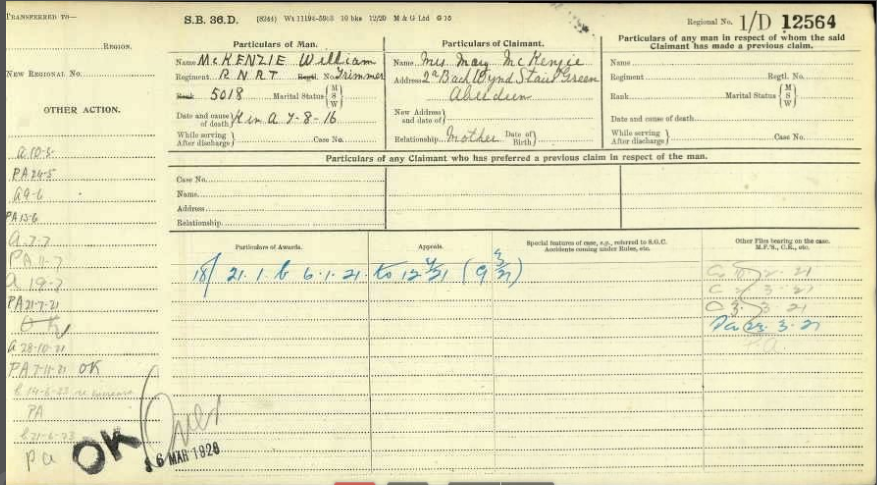 TRANSFERRED TO—
REGION.
NEW REGIONAL NO.
OTHER ACTION.
S.B. 36.D. (8244) Wx 11194-5943 10 bks 12/20 M & G Ltd G 10
Regional No. 1/D 12564
Particulars of Man.
Name McKENZIE William
Regiment R N R T Regtl. No. Trimmer
Rank 5018 Marital Status { M S W
Date and cause of death } K in A 7-8-16
While serving After discharge } Case No.
Particulars of Claimant.
Name Mrs May McKenzie
Address 2a Back Wynd Stairs Green
Aberdeen
New Address and date of }
Relationship Mother Date of Birth }
Particulars of any man in respect of whom the said Claimant has made a previous claim.
Name
Regiment Regtl. No.
Rank Marital Status { M S W
Date and cause of death
While serving After discharge } Case No.
Particulars of any Claimant who has preferred a previous claim in respect of the man.
Case No.
Name
Address
Relationship
Particulars of Awards.
Appeals.
Special features of case, e.g., referred to S.G.C. Accidents coming under Rules, etc.
Other Files bearing on the case. M.F.'s, C.R., etc.
21.1. 6.1.21. to 12
3. 21
3. 21
3. 21
PA 24-5
a 9-6
PA 13-6
a 7-7
PA 11-7
a 19-7
PA 21-7-21
OK
a 28-10-21
PA 7-11-21 OK
PA
Pa
OK
Over
16 MAR 1920